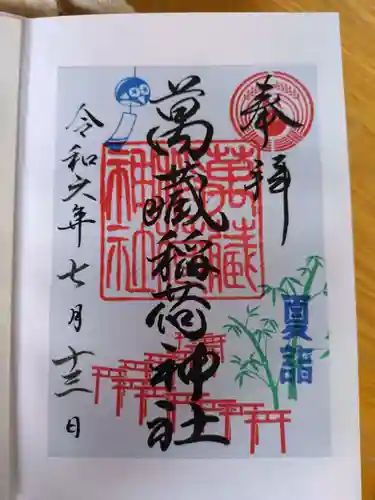 奉拝
夏詣
萬藏稲荷神社
萬藏
神社
令和六年七月十三日